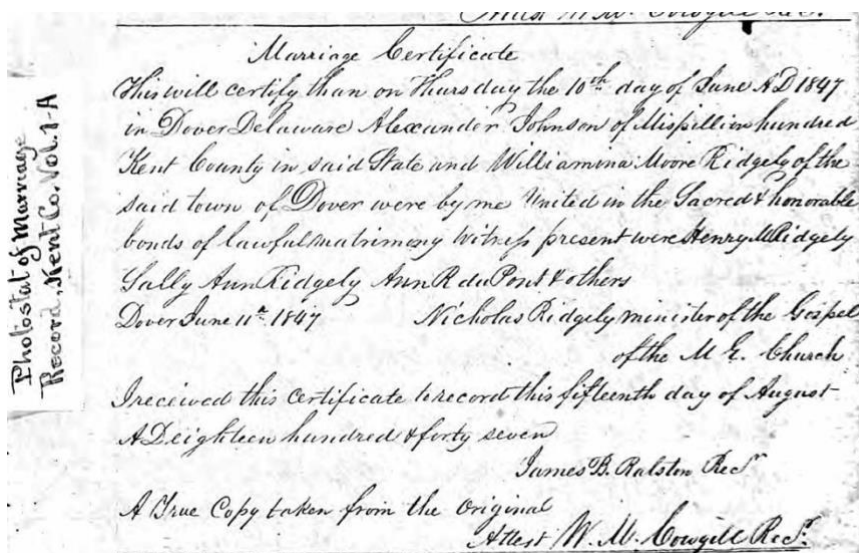 Attest W. W. Cowgill Rec.
Photostat of Marriage
Record, Kent Co. Vol. 1-A
Marriage Certificate
This will certify than on Thursday the 10th day of June AD 1847
in Dover Delaware Alexander Johnson of Mispillion hundred
Kent County in said State and Williamina Moore Ridgely of the
said town of Dover were by me United in the Sacred & honorable
bonds of lawful matrimony Witness present were Henry M Ridgely
Sally Ann Ridgely Ann R du Pont & others
Dover June 11th 1847 Nicholas Ridgely minister of the Gospel
of the M E. Church
I received this Certificate to record this fifteenth day of August
AD eighteen hundred & forty seven
James B. Ralston Recr
A True Copy taken from the Original
Attest W. W. Cowgill Recr.